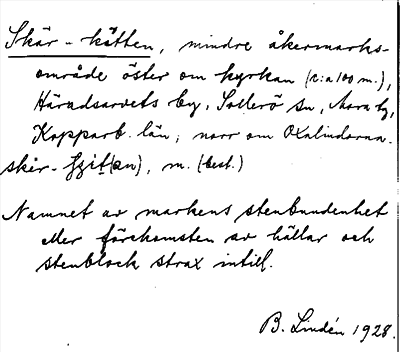 Skär-kåtten, mindre åkermarks-
område öster om kyrkan (c:a 100 m.),
Häradsarvets by, Sollerö sn, Mora tg,
Kopparb. län, norr om Oxalindorna.
skèr- (en), m. (best.)
Namnet av markens stenbundenhet
eller förekomsten av hällar och
stenblock strax intill.
B. Lindén 1928.